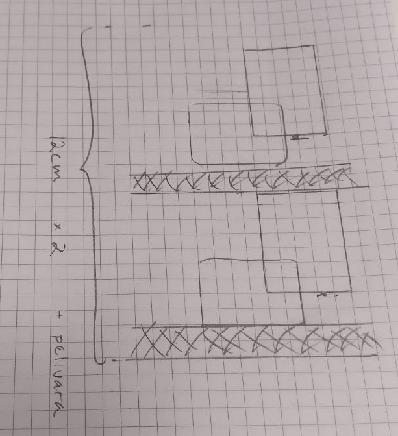 12cm x 2 + pelivara